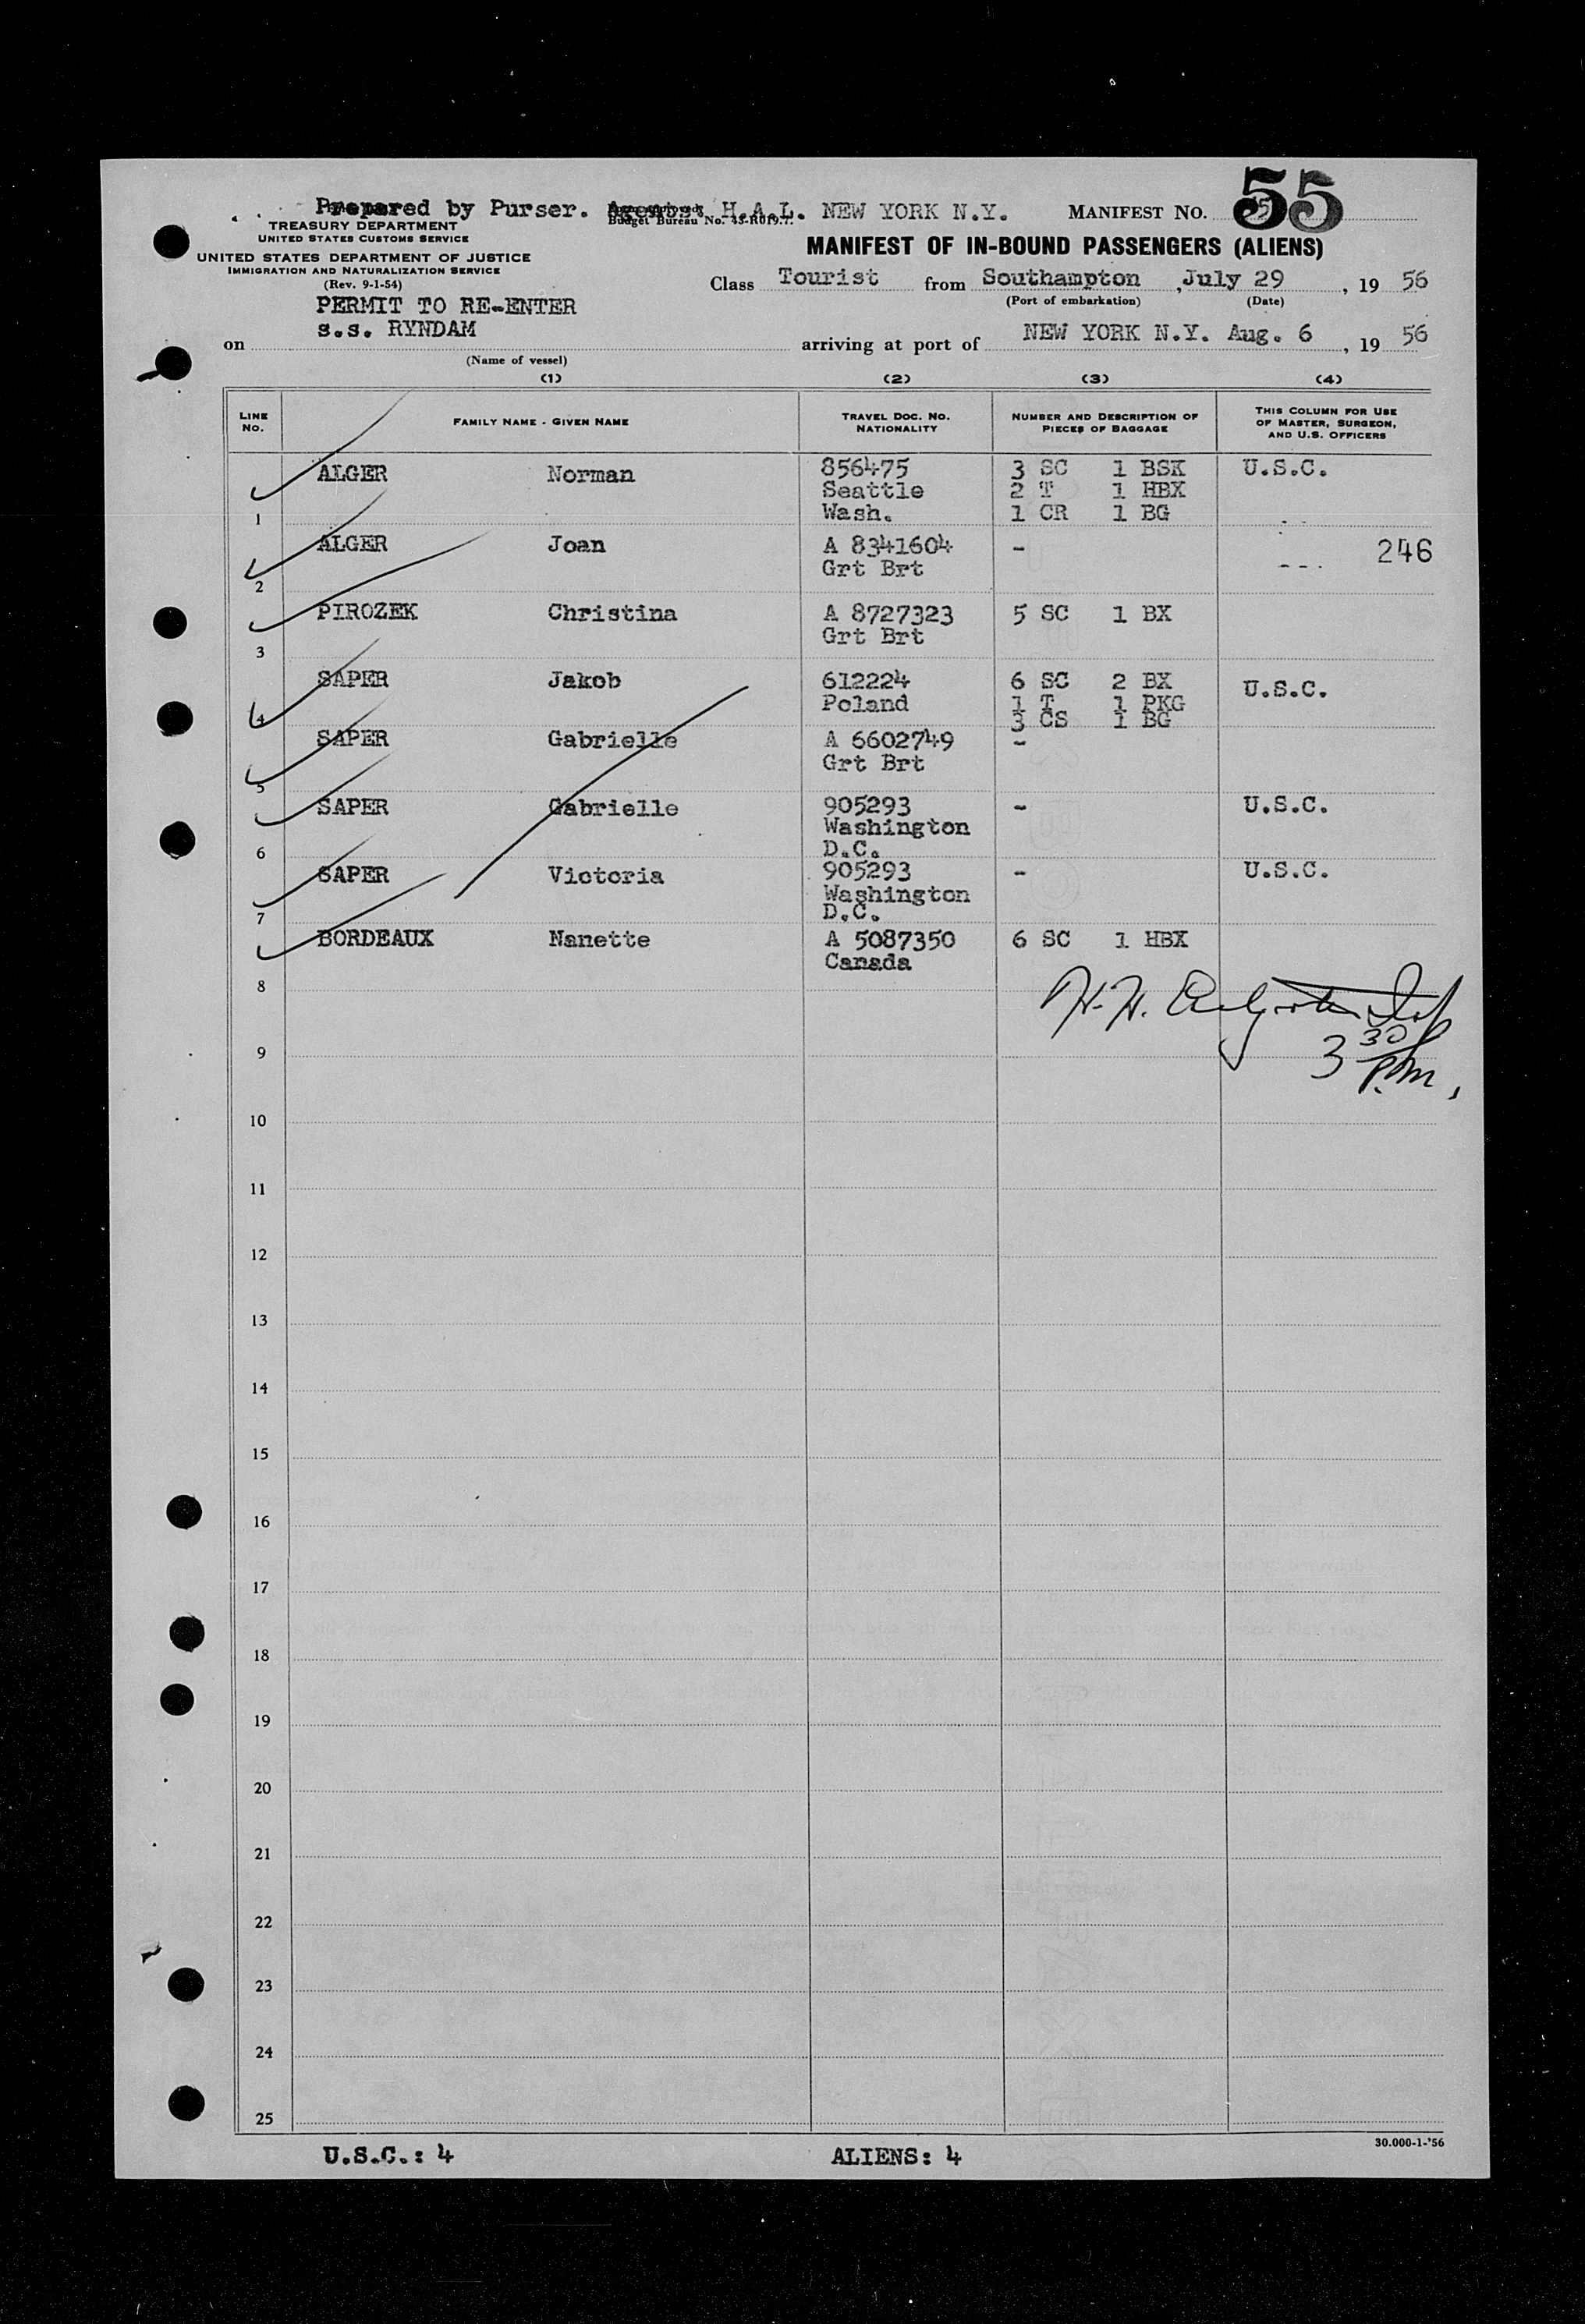 Prepared by Purser. Agents: H.A.L. NEW YORK N.Y. MANIFEST No. 55
Budget Bureau No. 43-R019.7.
TREASURY DEPARTMENT
UNITED STATES CUSTOMS SERVICE
UNITED STATES DEPARTMENT OF JUSTICE
IMMIGRATION AND NATURALIZATION SERVICE
(Rev. 9-1-54)
MANIFEST OF IN-BOUND PASSENGERS (ALIENS)
Class Tourist from Southampton , July 29 , 19 56
(Port of embarkation) (Date)
PERMIT TO RE-ENTER
on s.s. RYNDAM arriving at port of NEW YORK N.Y. Aug. 6 , 19 56
(Name of vessel)
(1) (2) (3) (4)
LINE NO. FAMILY NAME - GIVEN NAME TRAVEL DOC. NO. NATIONALITY NUMBER AND DESCRIPTION OF PIECES OF BAGGAGE THIS COLUMN FOR USE OF MASTER, SURGEON, AND U.S. OFFICERS
ALGER Norman 856475 3 SC 1 BSK U.S.C.
Seattle 2 T 1 HBX
1 Wash. 1 CR 1 BG
ALGER Joan A 8341604 - 246
2 Grt Brt
PIROZEK Christina A 8727323 5 SC 1 BX
3 Grt Brt
SAPER Jakob 612224 6 SC 2 BX U.S.C.
4 Poland 1 T 1 PKG
3 CS 1 BG
SAPER Gabrielle A 6602749 -
5 Grt Brt
SAPER Gabrielle 905293 - U.S.C.
Washington
6 D.C.
SAPER Victoria 905293 - U.S.C.
Washington
7 D.C.
BORDEAUX Nanette A 5087350 6 SC 1 HBX
8 Canada
H. H.
3 30 P.m.
9
10
11
12
13
14
15
16
17
18
19
20
21
22
23
24
25
30.000-1-'56
U.S.C.: 4 ALIENS: 4